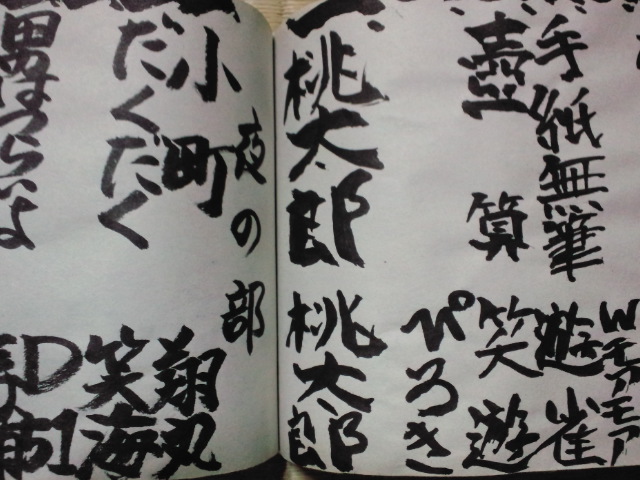 Wモアモア
手紙無筆 遊雀
壺算 笑遊
ぴろき
一、桃太郎 桃太郎
夜の部
一、小町 翔丸
だくだく 笑海
D51
男はつらいよ